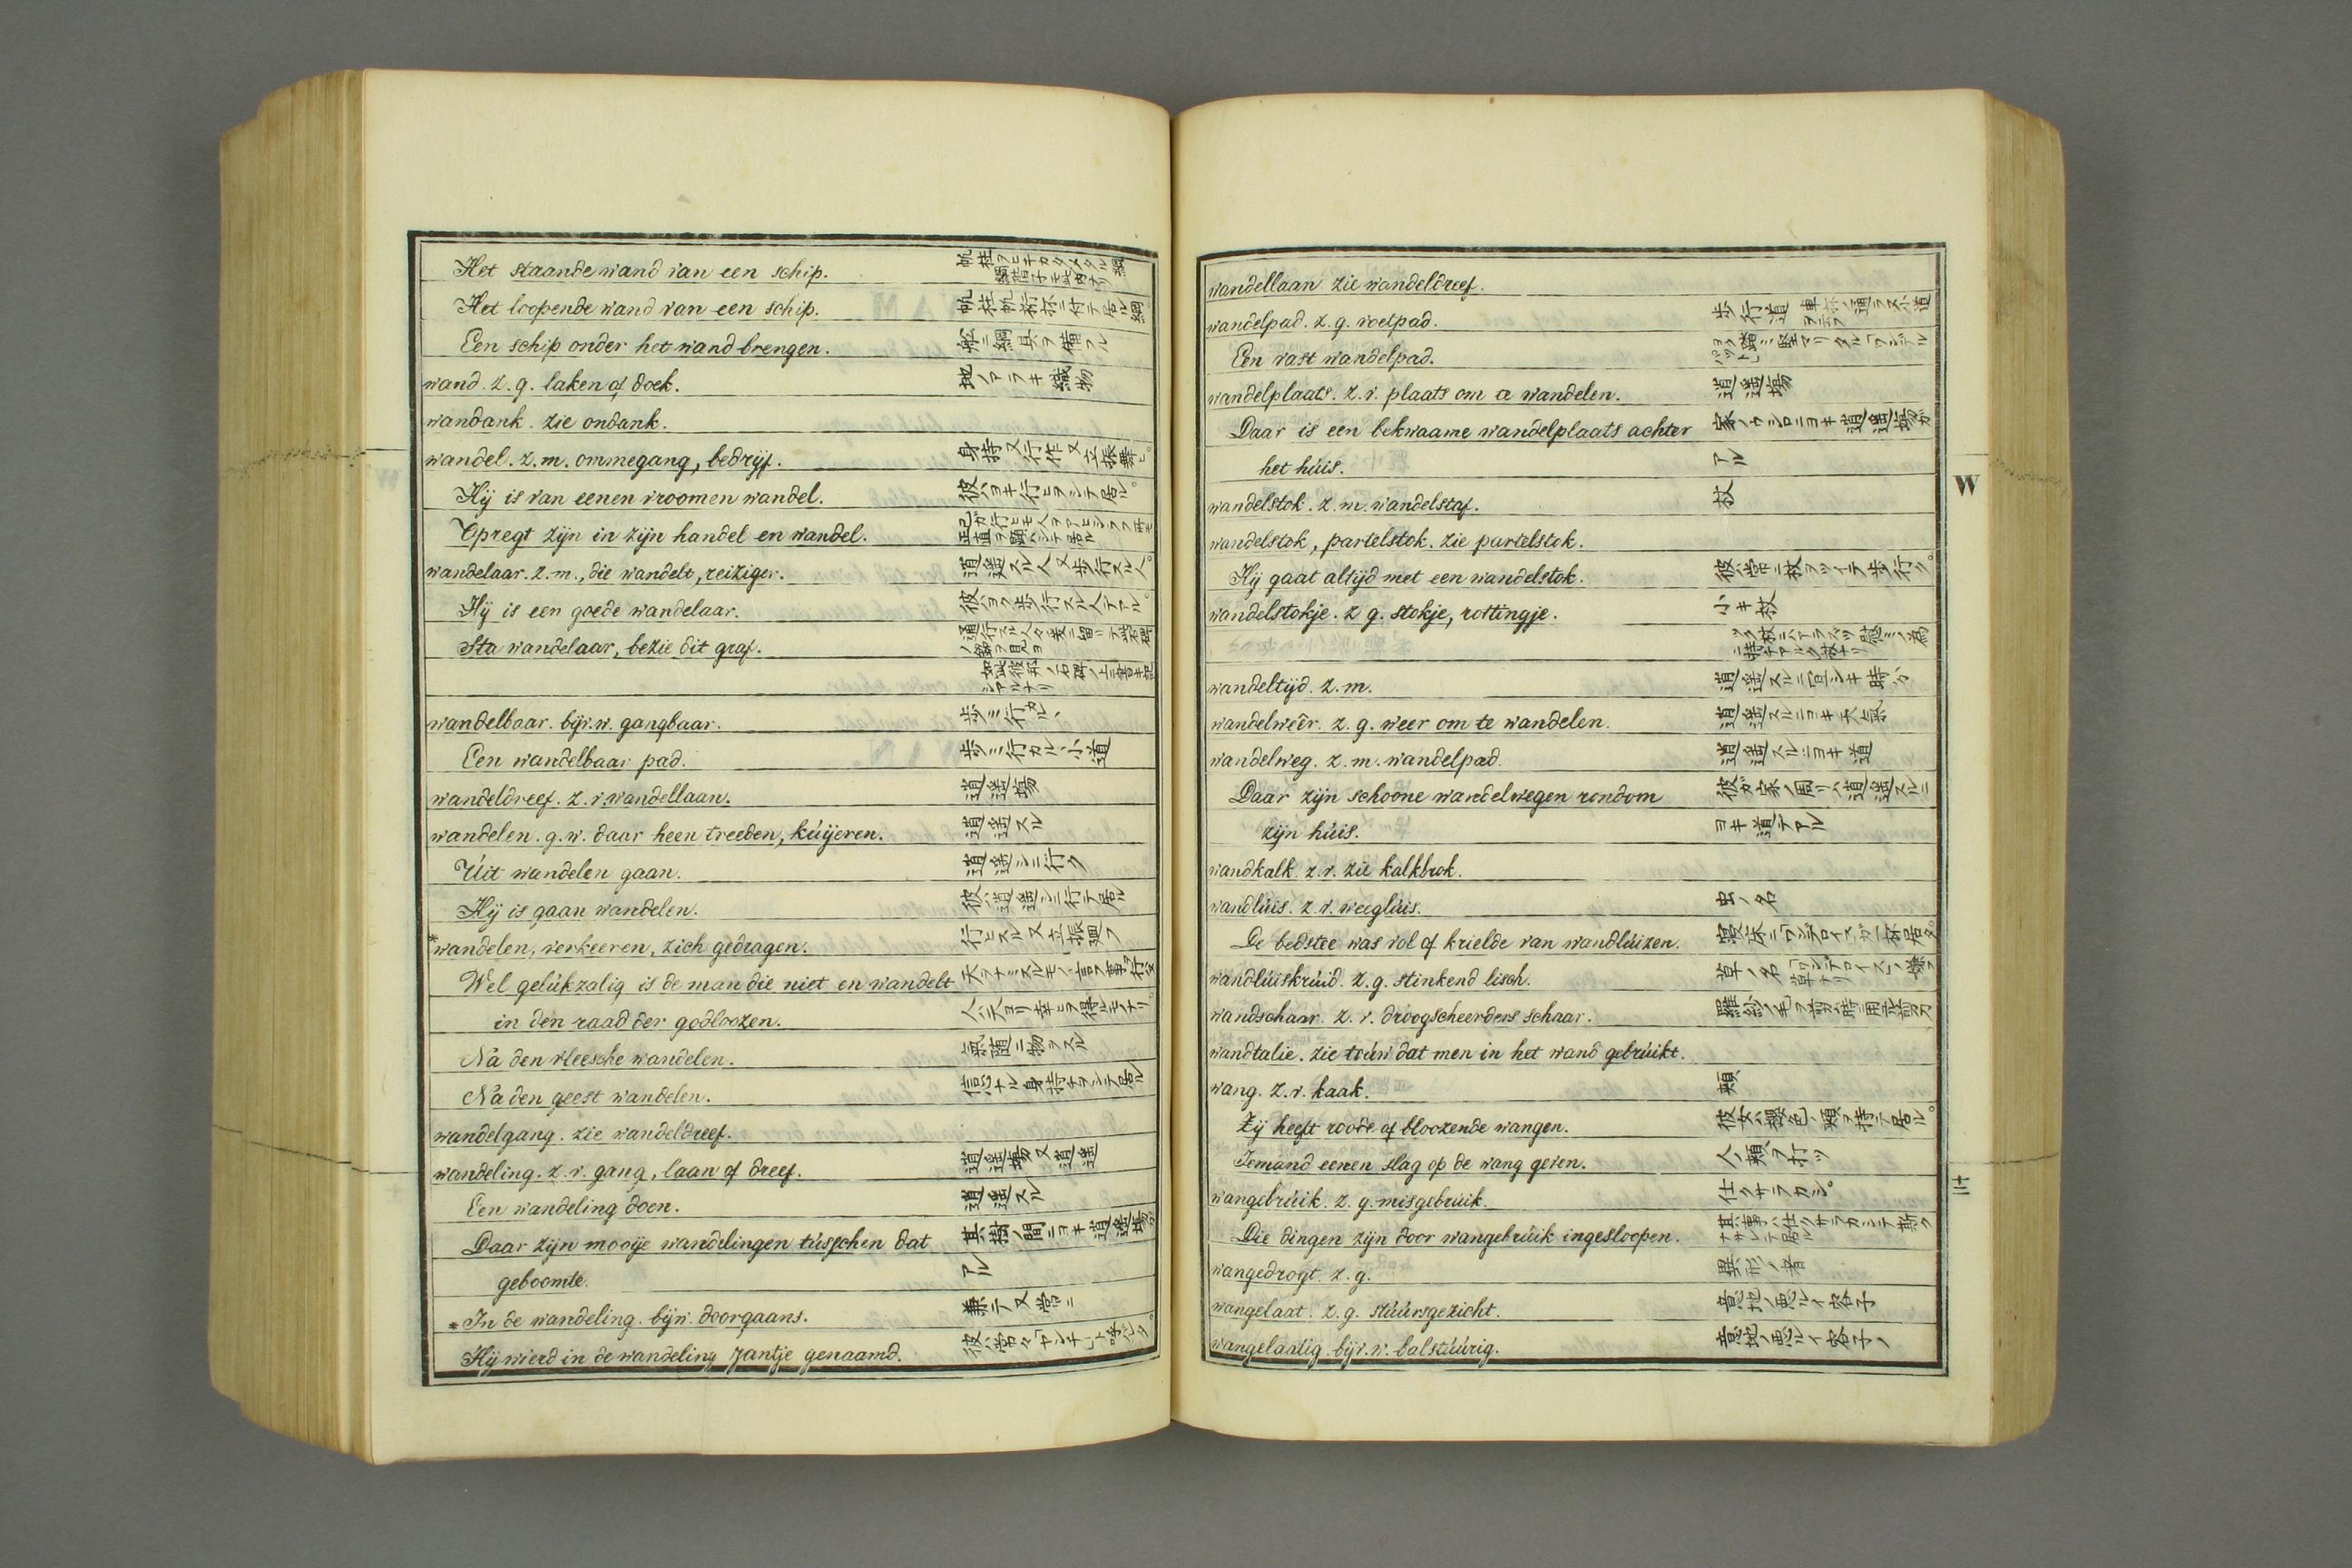 Het staande wand van een schip. 帆柱ヲヒキカタメタル綱
Het loopende wand van een schip. 帆柱帆桁抔ニ付テ居ル綱
Een schip onder het wand brengen. 船ニ綱具ヲ備フル
wand. z. g. laken of doek. 地ノアラキ織物
wandank. zie ondank.
wandel. z. m. ommegang, bedrijf. 身持又行作又立振舞ヒ。
Hij is van eenen vroomen wandel. 彼ハヨキ行ヒヲシテ居ル。
Opregt zijn in zijn handel en wandel. 正直ヲ顕ハシテ居ル
wandelaar. z. m., die wandelt, reiziger. 道遥スル人又歩行スル人。
Hij is een goede wandelaar. 彼ハヨク歩行スル人デアル。
Sta wandelaar, bezie dit graf.
wandelbaar. bijv. w. gangbaar. 歩ミ行カル、
Een wandelbaar pad. 歩ミ行カル小道
wandeldreef. z. v. wandellaan. 道遥場
wandelen. g. w. daar heen treeden, kúijeren. 道遥スル
Úit wandelen gaan. 道遥シニ行ク
Hij is gaan wandelen. 彼ハ道遥シニ行テ居ル
*wandelen, verkeeren, zich gedragen. 行ヒスル又立振廻フ
Wel gelúkzalig is de man die niet en wandelt
in den raad der godloozen. 人ハ天ヨリ幸ヒヲ得ルモノナリ。
Na den vleesche wandelen. 氣随ニ物ヲスル
Na den geest wandelen. 信心ナル身持チヲシテ居ル
wandelgang. zie wandeldreef.
wandeling. z. v. gang, laan of dreef. 道遥場又道遥
Een wandeling doen. 道遥スル
Daar zijn mooije wandelingen tússchen dat 其樹ノ間ニヨキ道遥場ガ
geboomte. アル
* In de wandeling. bijw. doorgaans. 兼テ又常ニ
Hij wierd in de wandeling Jantje genaamd. 彼ハ常々「ヤンチー」ト呼レタ。
wandellaan zie wandeldreef.
wandelpad. z. g. voetpad. 歩行道 車抔ノ通ラヌ小道ヲ云フ
Een vast wandelpad.
wandelplaats. z. v. plaats om a wandelen. 道遥場
Daar is een bekwaame wandelplaats achter 家ノウシロニヨキ道遥場ガ
het húis. アル
wandelstok. z. m. wandelstaf. 杖
wandelstok, partelstok. zie partelstok.
Hij gaat altijd met een wandelstok. 彼ハ常ニ杖ヲツイテ歩行ク。
wandelstokje. z g. stokje, rottingje. 小キ杖
wandeltijd. z. m. 道遥スルニ宜シキ時分
wandelweêr. z. g. weer om te wandelen. 道遥スルニヨキ天氣
wandelweg. z. m. wandelpad. 道遥スルニヨキ道
Daar zijn schoone wandelwegen rondom 彼ガ家ノ周リハ道遥スルニ
zijn húis. ヨキ道デアル
wandkalk. z. v. zie kalkbrok.
wandlúis. z. v. weeglúis. 虫ノ名
De bedstee was vol of krielde van wandlúizen.
wandlúiskrúid. z. g. stinkend lisch. 草ノ名
wandschaar. z. v. droogscheerders schaar.
wandtalie. zie toúw dat men in het wand gebrúikt.
wang. z. v. kaak. 頬
Zij heeft roode of bloozende wangen. 彼女ハ櫻色ノ頬ヲ持テ居ル。
Iemand eenen slag op de wang geven. 人ノ頬ヲ打ツ
wangebrúik. z. g. misgebruik. 仕クサラカシ。
Die dingen zijn door wangebrúik ingesloopen. 其事ハ仕クサラカシテ斯クナサレテ居ル
wangedrogt. z. g. 異形ノ者
wangelaat. z. g. stúúrsgezicht. 意地ノ悪ルイ容子
wangelaatig. bijv. w. balstúúrig. 意地ノ悪ルイ容子ノ
W